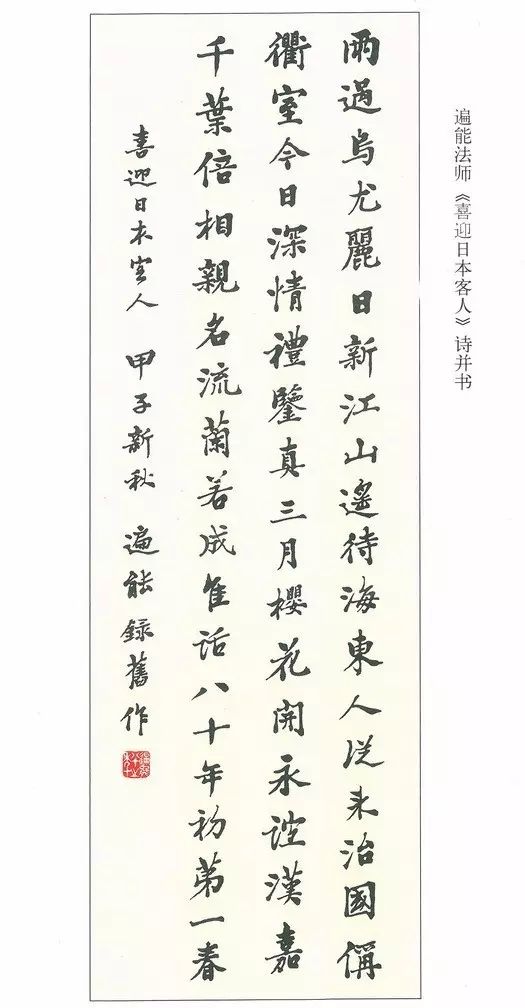 遍能法师《喜迎日本客人》诗并书
雨過烏尤麗日新江山遙待海東人從来治國偁
衢室今日深情禮鑒真三月櫻花開永誼漢嘉
千葉倍相親名流蘭若成佳話八十年初第一春
喜迎日本客人 甲子新秋 遍能 録舊作